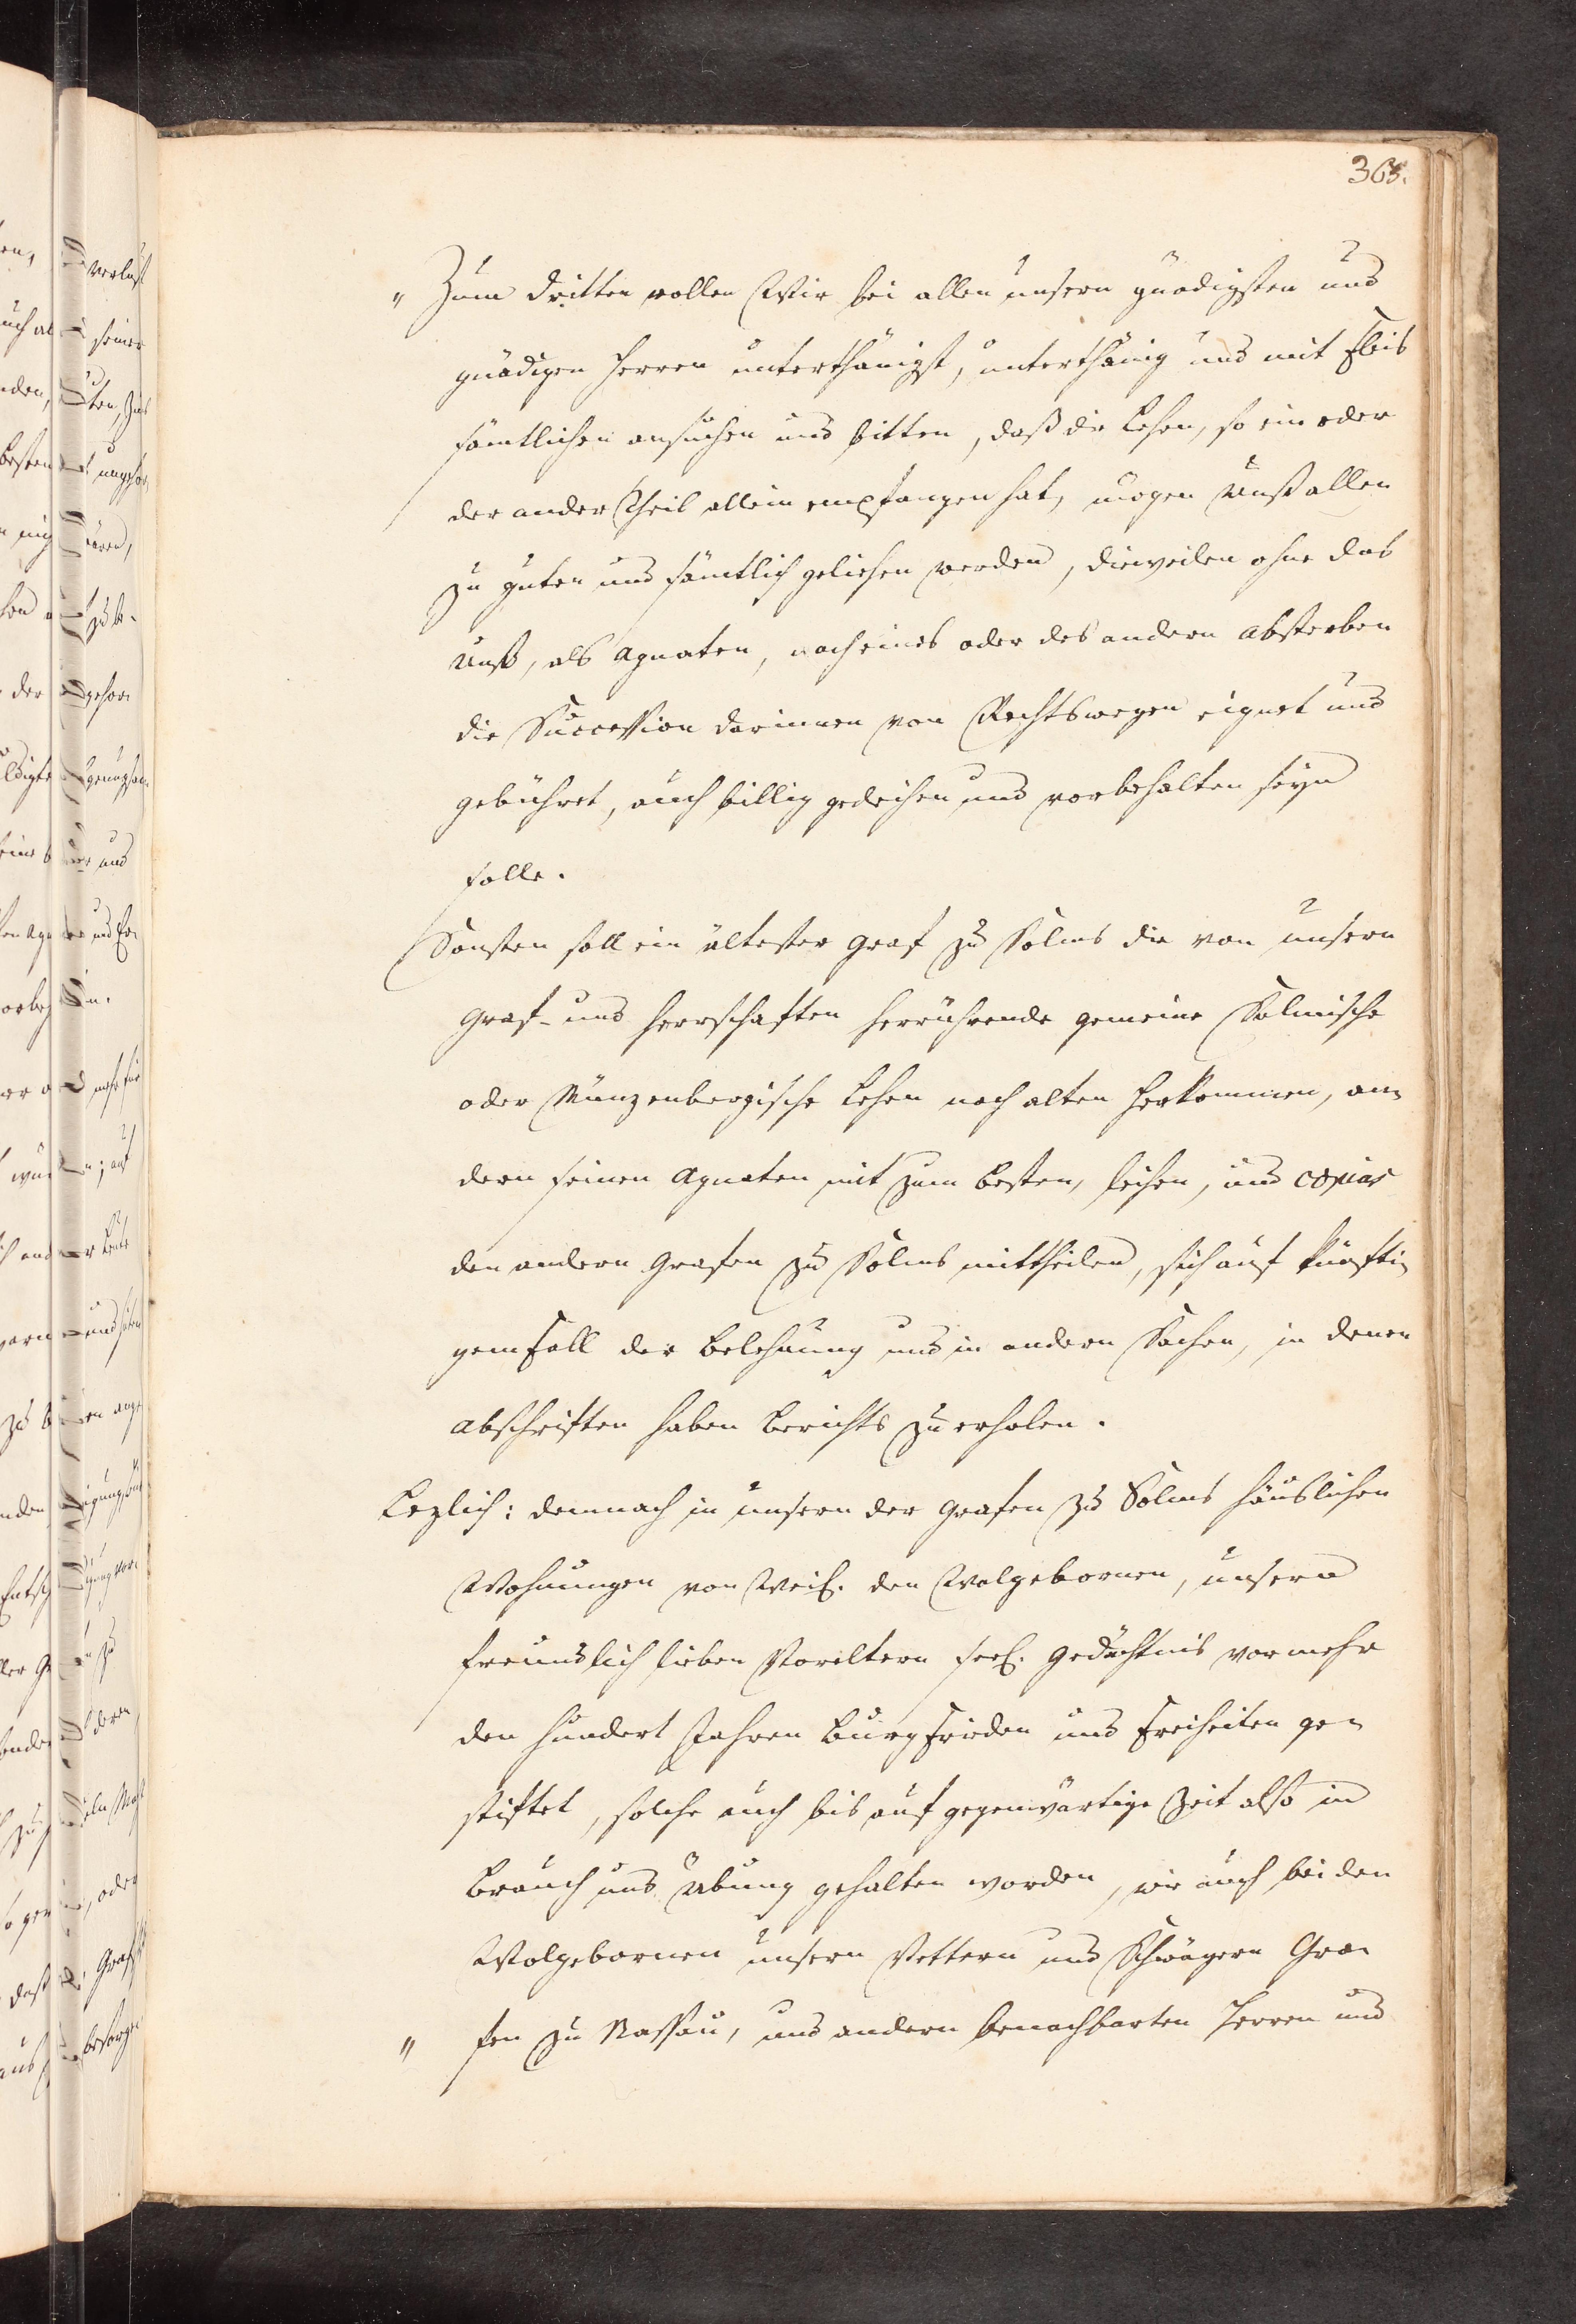 363.
" Zum dritten wollen Wir bei allen unsern gnädigsten und
gnädigen Herren unterthänigst, unterthänig und mit Fleis
sämtlichen ansuchen und bitten, daß die Lehen, so ein oder
der ander Theil allein empfangen hat, mögen Unß allen
zu guten und sämtlich geliehen werden, dieweilen ohne das
Unß, als Agnaten, nach eines oder des andern Absterben
die Succession darinnen von Rechtswegen eignet und
gebühret, auch billig gedeihen und vorbehalten seyn
solle.
Sonsten soll ein ältester Graf zu Solms die von unsern
Graf- und Herrschaften herrührende gemeine Solmische
oder Münzenbergische Lehen nach alten Herkommen, an-
dern seinen Agnaten mit zum Besten, leihen, und copias
den andern Grafen zu Solms mittheilen, sich auf künfti-
gem Fall der Belehnung und in andern Sachen, in denen
Abschriften haben Berichts zu erholen.
Lezlich: demnach in unsern der Grafen zu Solms häuslichen
Wohnungen von Weil. den Wolgebornen, unsern
freundlich lieben Voreltern seel. Gedächtnis vor mehr
den hundert Jahren Burgfrieden und Freiheiten ge-
stiftet, solche auch bis auf gegenwärtige Zeit also in
Brauch und Übung gehalten worden, wie auch bei den
Wolgebornen unsern Vettern und Schwägern Gra-
" fen zu Nassau, und andern benachbarten Herren und